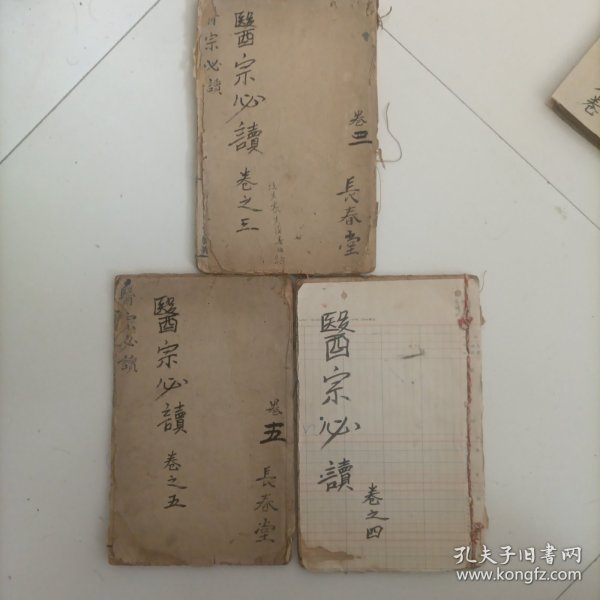 醫宗必讀
卷之三
宗必讀
卷三
長春堂
醫宗必讀
卷之五
醫宗必讀
卷五
長春堂
醫宗必讀
卷之四
卷
孔夫子旧书网
www.kongfz.com